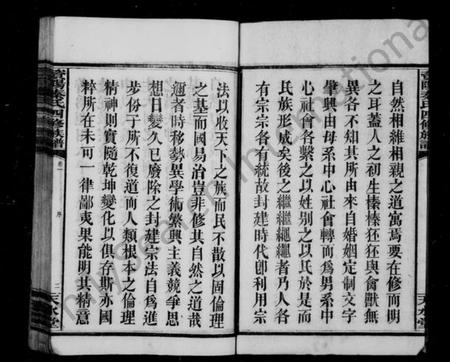 自然相維相親之道寓焉要在修而明
之耳蓋人之初生榛榛狂狂與禽獸無
異各不知其所由來自婚姻定制文字
肇興由母系中心社會轉而爲男系中
心社會各繫之以姓別之以氏於是而
民族形成矣後之繼繼繩繩者乃人各
有宗宗各有統故封建時代卽利用宗
法以收天下之族而民不散以固倫理
之基而國易治豈非修其自然之道哉
邇者時移勢異學術繁興主義競爭思
想日變久已廢除之封建宗法自爲進
步份子所不復道而人類根本之倫理
精神則實隨乾坤變化以俱存斯亦國
粹所在未可一律鄙夷果能明其精意
氏四修族譜
序
天水堂